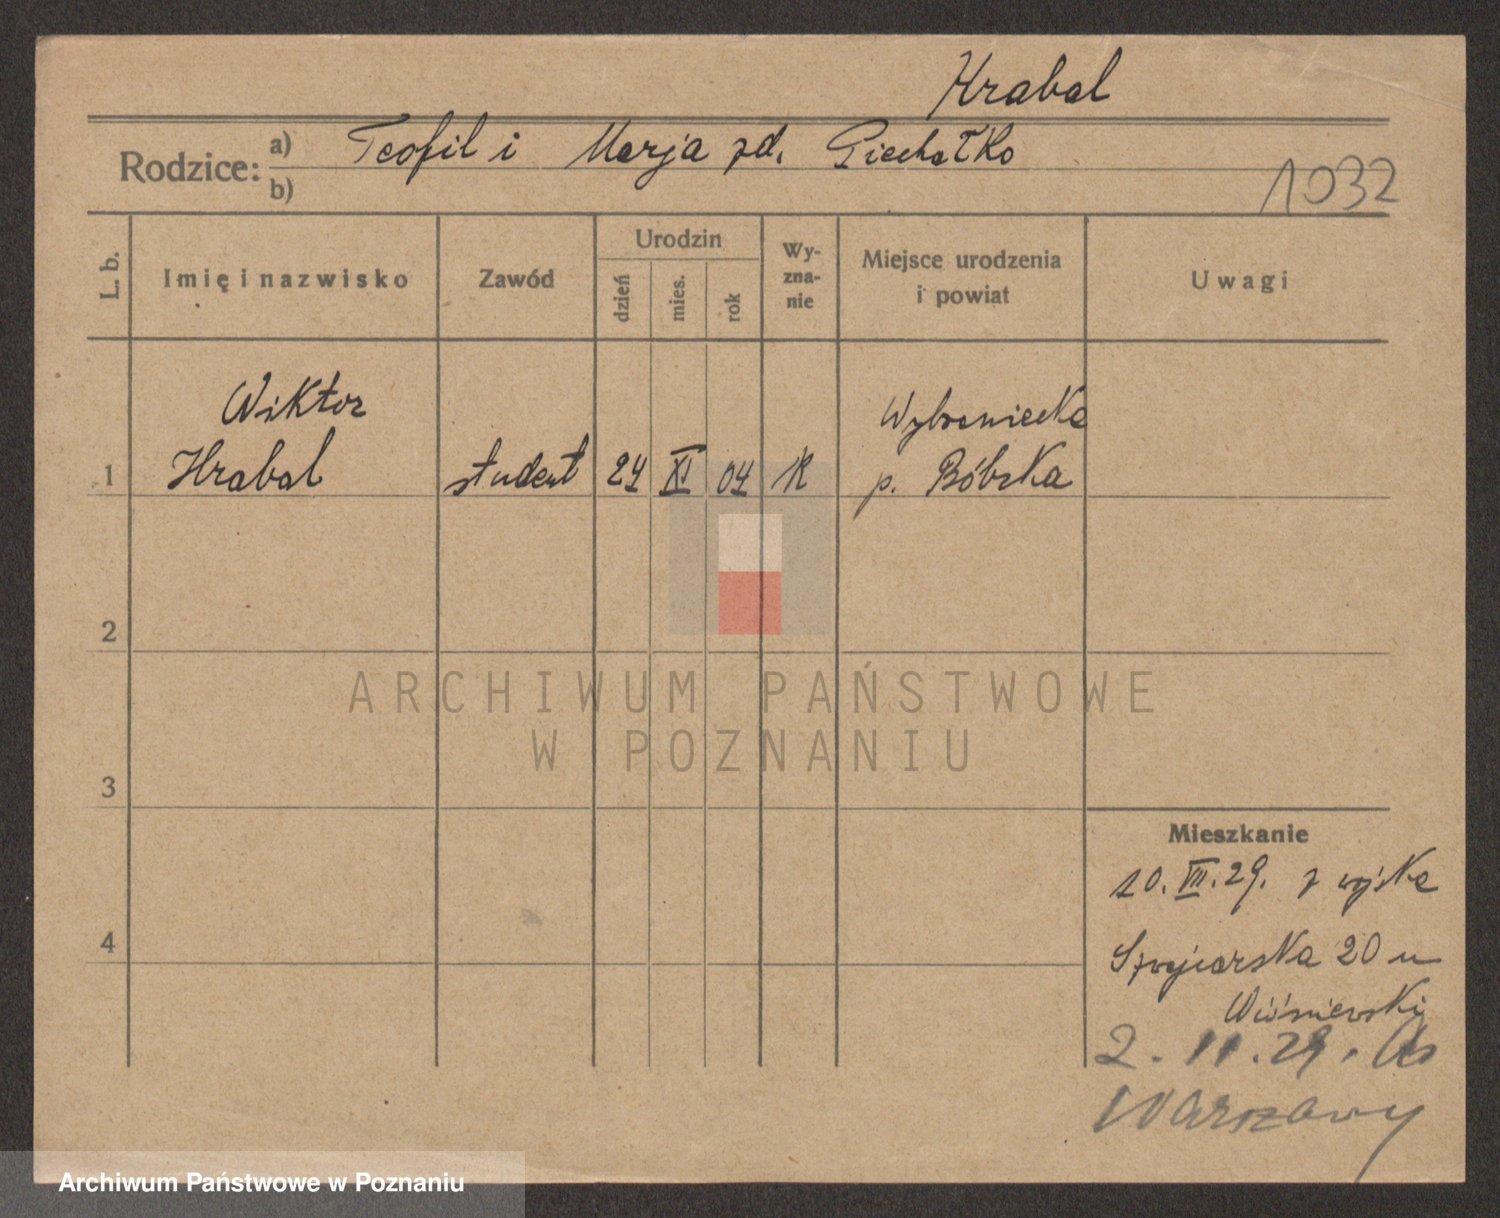 Hrabal
Rodzice:
a) Teofil i Marja zd. Piechatko
b)
1032
L. b.
Imię i nazwisko
Zawód
Urodzin
dzień
mies.
rok
Wy-
zna-
nie
Miejsce urodzenia
i powiat
Uwagi
Wiktor
1 Hrabal student 24 XI 04 R
p. Bóbrka
2
3
4
Mieszkanie
10. VII. 29. z wojska
20 u
Wiśniewski
2. 11. 29. do
Warszawy
ARCHIWUM PAŃSTWOWE
W POZNANIU
Archiwum Państwowe w Poznaniu